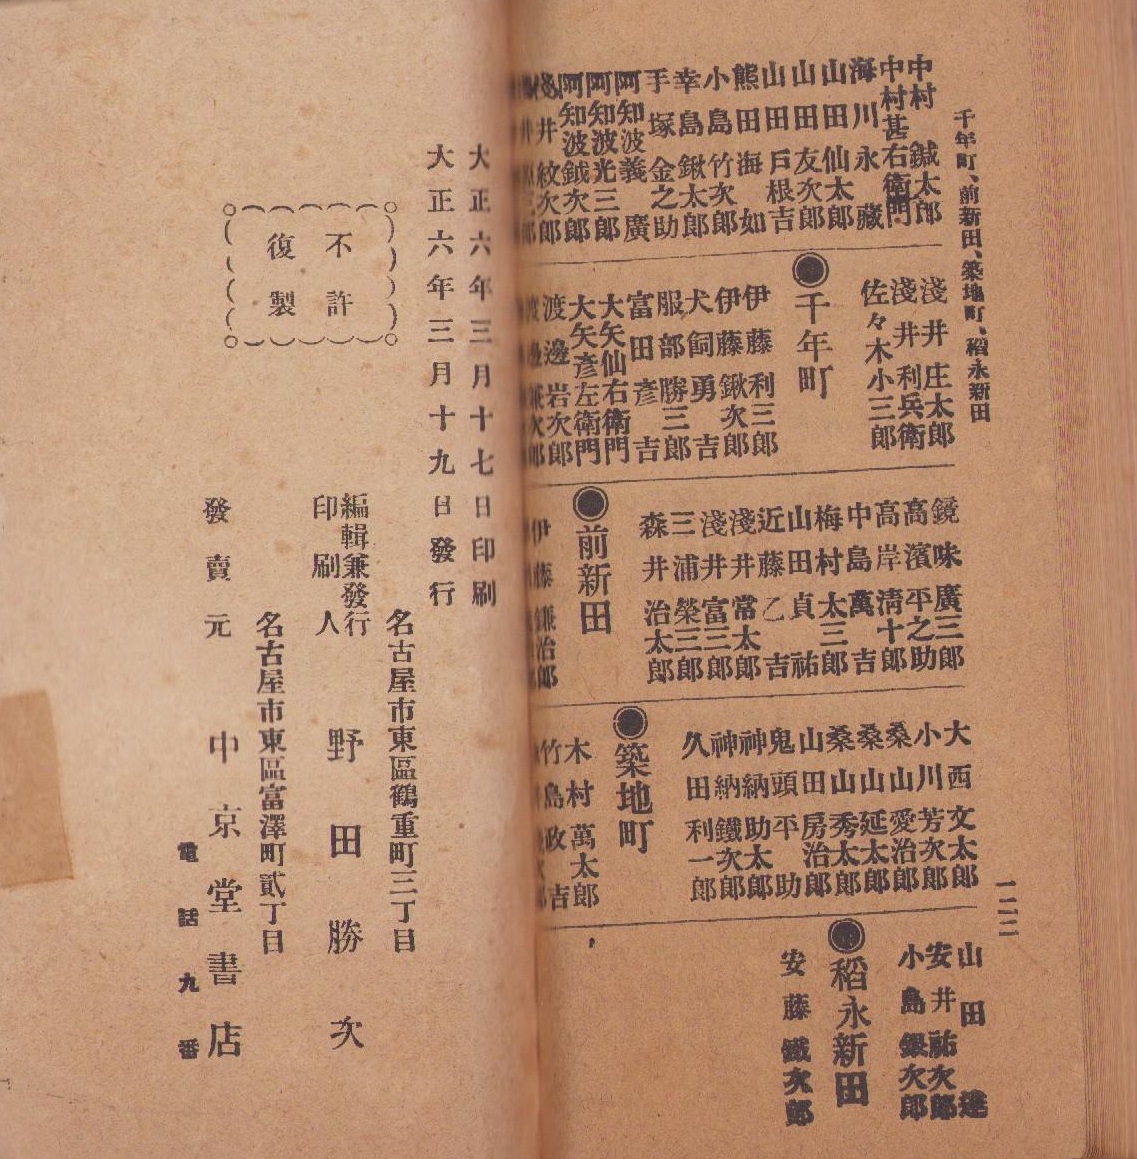 千年町、前新田、築地町、稻永新田
一二三
中村鍼太郎
中村甚右衛門
海川永藏
山田仙太郎
山田友次郎
山田戸根吉
熊田海如
小島竹次郎
幸島鍬太郎
手塚金之助
阿知波義廣
阿知波光三郎
阿知波鉞次郎
淺井庄太郎
淺井利兵衛
佐々木小三郎
◉千年町
伊藤利三郎
伊藤鍬次郎
犬飼勇吉
服部勝三郎
富田彥吉
大矢仙右衛門
大矢彥左衛門
渡邊岩次郎
鏡味廣三郎
高濱平之助
高岸淸十郎
中島萬吉
梅村太三郎
山田貞祐
近藤乙吉
淺井常太郎
淺井富三郎
三浦榮三郎
森井治太郎
◉前新田
伊藤鎌治郎
大西文太郎
小川芳次郎
桑山愛治郎
桑山延太郎
桑山秀太郎
山田房治郎
鬼頭平助
神納助太郎
神納鐵次郎
久田利一郎
◉築地町
木村萬太郎
竹島政吉
山田達
安井祐次郎
小島銀次郎
◉稻永新田
安藤鐵次郎
大正六年三月十七日印刷
大正六年三月十九日發行
不許
復製
名古屋市東區鶴重町三丁目
編輯兼發行
印刷人
野田勝次
名古屋市東區富澤町貳丁目
發賣元
中京堂書店
電話九番